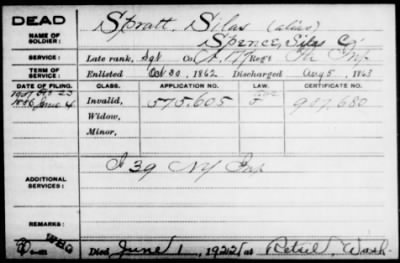 DEAD
NAME OF SOLDIER:
Spratt, Silas (alias)
Spence, Silas C.
SERVICE:
Late rank, Sgt Co. A, 177 Reg't Pa Inf
TERM OF SERVICE:
Enlisted Oct 30, 1862 Discharged Aug 5, 1863
DATE OF FILING.
CLASS.
APPLICATION NO.
LAW.
CERTIFICATE NO.
1886 June 4
Invalid,
575.605
907.680
Widow,
Minor,
ADDITIONAL SERVICES:
I 39 NJ Inf
REMARKS:
WHG
Died June 1, 1922, at Retsil, Wash.